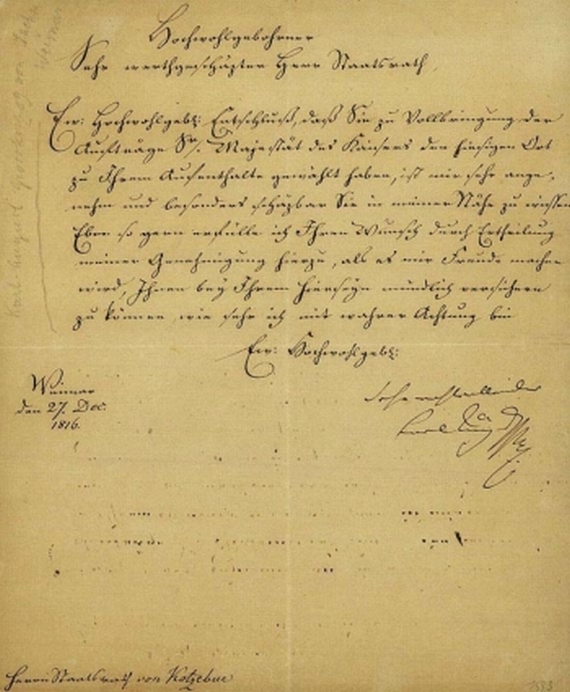 Hochwohlgebohrner
Sehr werthgeschäzter Herr Staatsrath,
Ew: Hochwohlgeb: Entschluß, daß Sie zu Vollbringung der
Aufträge Sr. Majestät des Kaisers den hiesigen Ort
zu Ihrem Aufenthalte gewählt haben, ist mir sehr ange,
nehm und besonders schäzbar Sie in meiner Nähe zu wissen
Eben so gern erfülle ich Ihren Wunsch durch Ertheilung
meiner Genehmigung hierzu, als es mir Freude machen
wird, Ihnen bey Ihrem Hierseyn mündlich versichern
zu können wie sehr ich mit wahrer Achtung bin
Ew: Hochwohlgeb:
Weimar
den 27. Dec.
1816.
Carl August
Herrn Staatsrath von Kotzebue